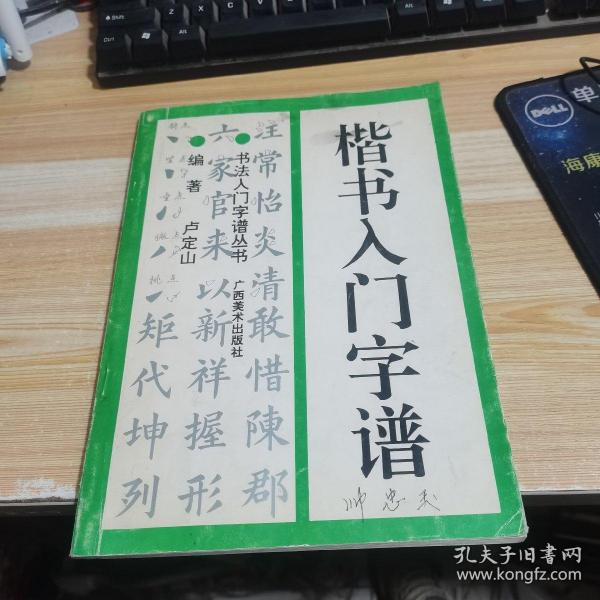 楷书入门字谱
书法入门字谱丛书 广西美术出版社
编著 卢定山
汪常怡炎清敢惜陳郡
六家官来以新祥握形
矩代坤列
斜点
挑点
DELL
单
海康
孔夫子旧书网
www.kongfz.com